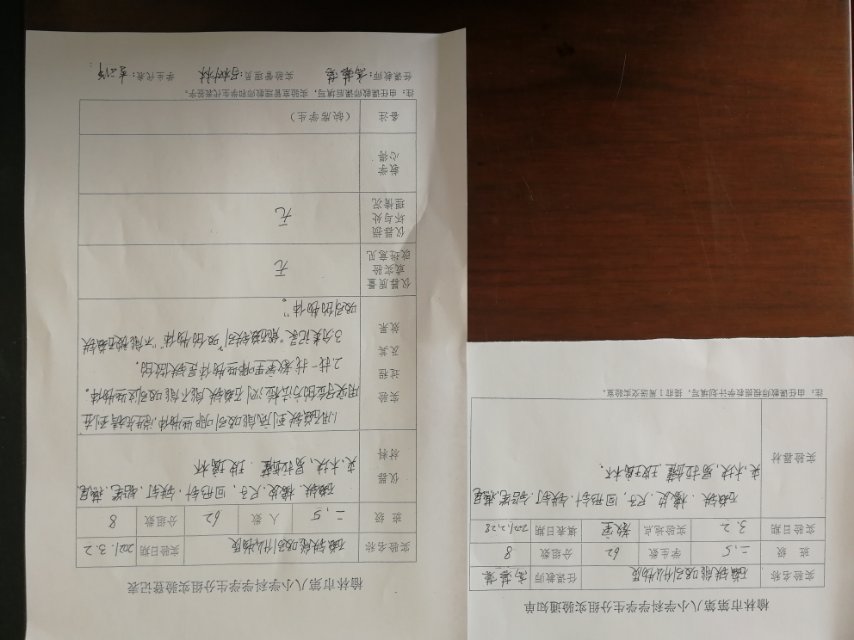 榆林市第八小学科学学生分组实验登记表
实验名称 磁铁能吸引什么物质 实验日期 2021.3.2
班级 二,5 人数 62 分组数 8
仪器材料 磁铁、橡皮、尺子、回形针、铁钉、铅笔、
夹、木块、易拉罐、玻璃杯
实验过程及其效果
1.用磁铁到底能吸引哪些物体,
用实验的方法检测磁铁能不能吸引这些物体。
2.找一找教室里哪些物体是铁做的。
3.分类记录"能被磁铁吸引的物体""不能被磁铁
吸引的物体"。
仪器质量或实验改进意见 无
仪器损坏与处理情况 无
教学心得
备注 (缺席学生)
注:由任课教师课后填写,实验室管理教师和学生代表签字。
任课教师: 实验管理员: 学生代表:
榆林市第八小学科学学生分组实验通知单
实验名称 磁铁能吸引什么物质 任课教师
班级 二,5 学生数 62 分组数 8
实验日期 3.2 实验地点 教室 填表日期 2021.2.28
实验器材 磁铁、橡皮、尺子、回形针、铁钉、铅笔、
夹、木块、易拉罐、玻璃杯。
注:由任课教师根据教学计划填写,提前1周送交实验室。